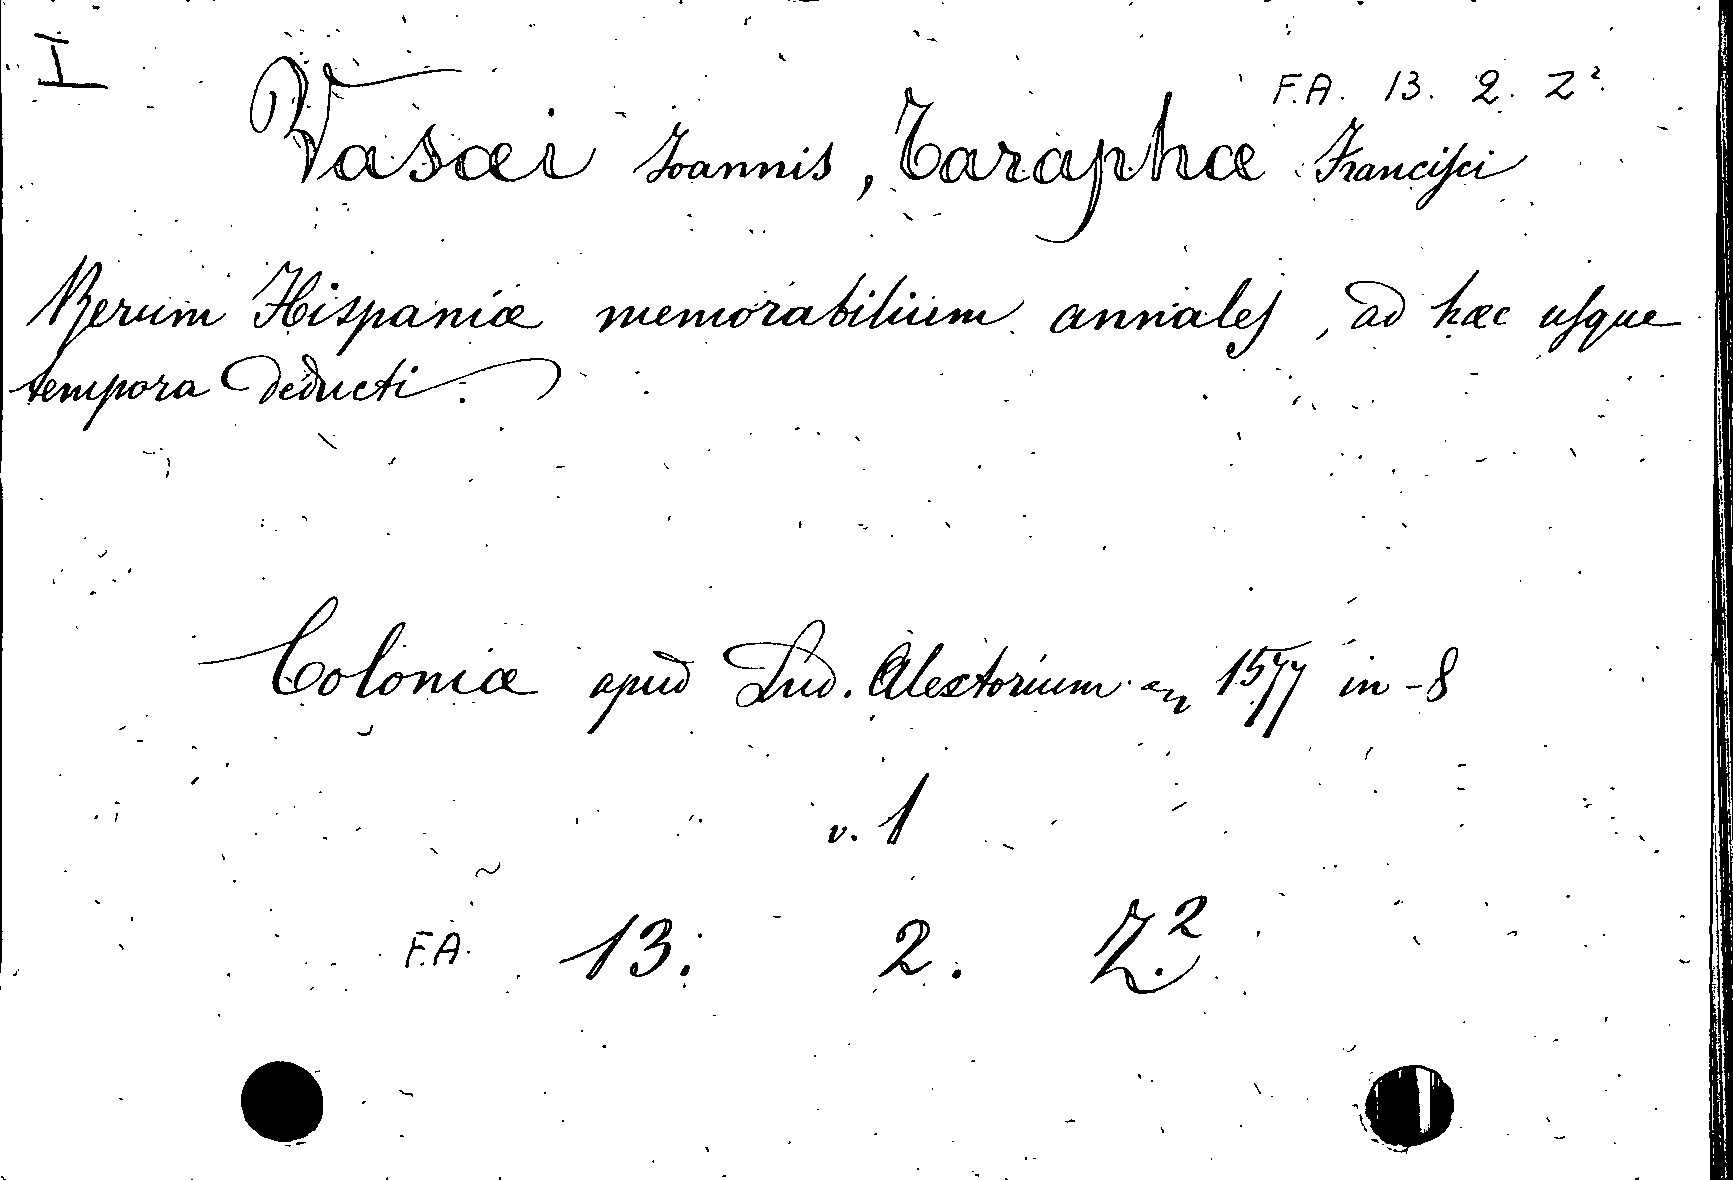 I
F.A. 13. 2. Z²
Vasæi Joannis, Taraphæ Francisci
Rerum Hispaniæ memorabilium annales, ad hæc usque
tempora deducti.
Coloniæ apud Lud. Alectorium an 1577 in-8
v. 1
F.A. 13. 2. Z.²